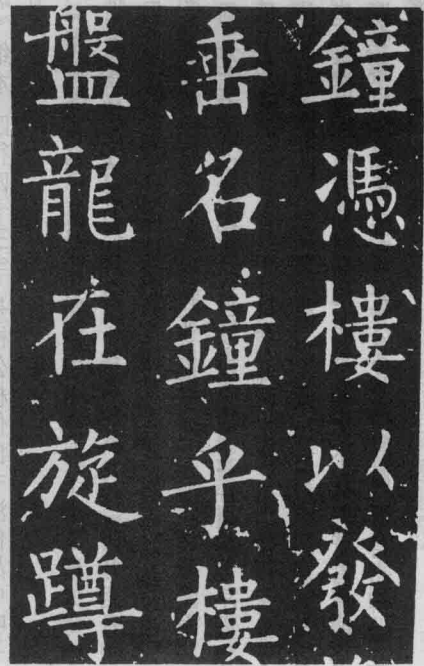 鐘憑樓以發
垂名鐘乎樓
盤龍在旋蹲